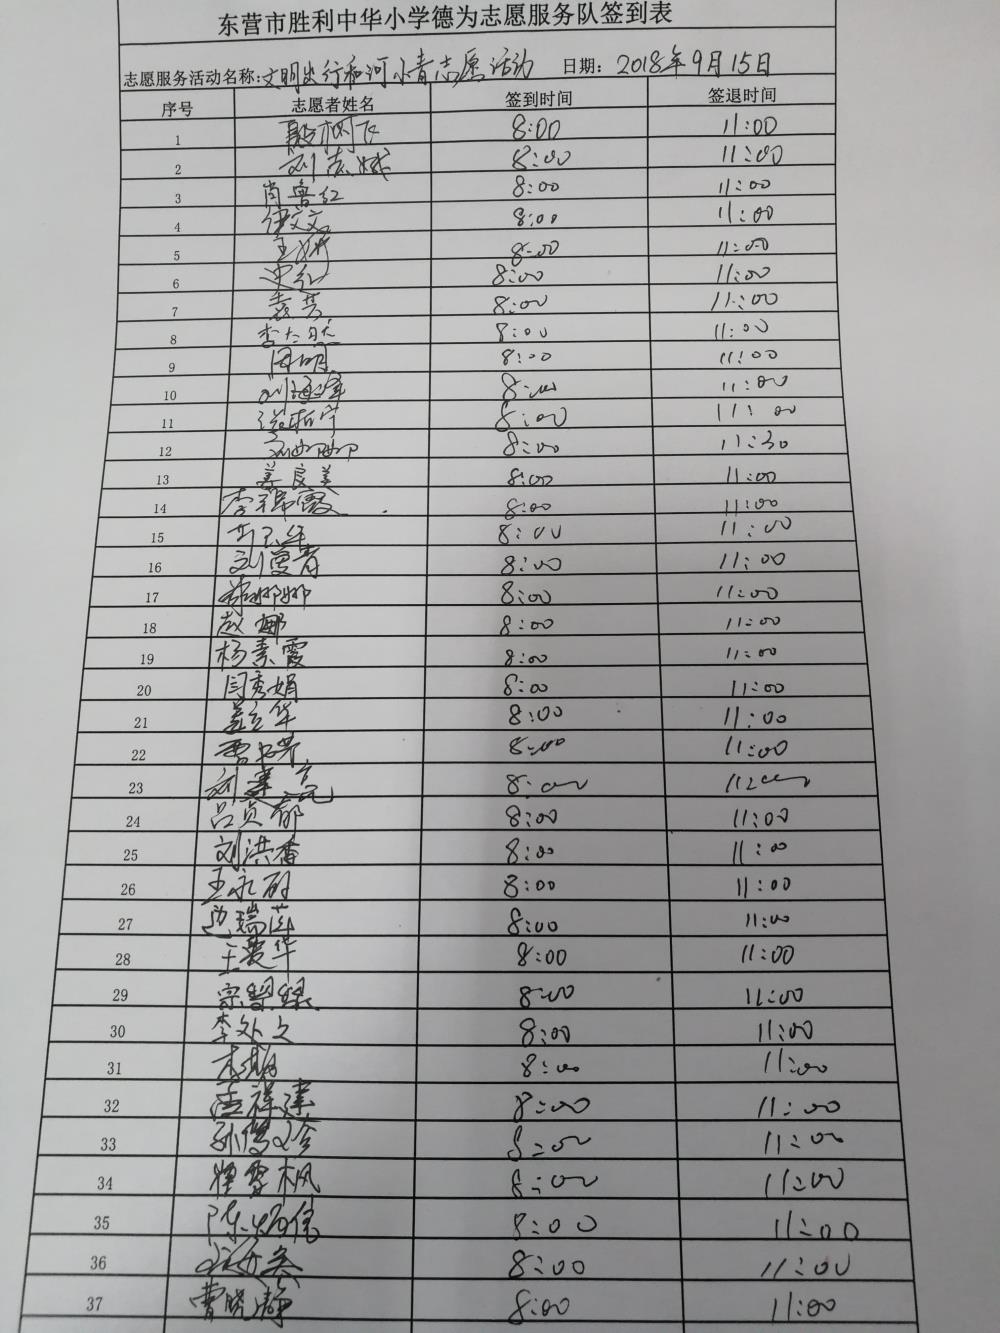 东营市胜利中华小学德为志愿服务队签到表
志愿服务活动名称:文明出行和河小青志愿活动 日期: 2018年9月15日
序号 志愿者姓名 签到时间 签退时间
1 8:00 11:00
2 8:00 11:00
3 肖鲁红 8:00 11:00
4 徐文文 8:00 11:00
5 8:00 11:00
6 史红 8:00 11:00
7 袁芳 8:00 11:00
8 8:00 11:00
9 周明 8:00 11:00
10 8:00 11:00
11 8:00 11:00
12 8:00 11:30
13 姜良美 8:00 11:00
14 李瑞霞 8:00 11:00
15 8:00 11:00
16 刘曼青 8:00 11:00
17 8:00 11:00
18 赵娜 8:00 11:00
19 杨素霞 8:00 11:00
20 闫秀娟 8:00 11:00
21 姜立华 8:00 11:00
22 8:00 11:00
23 8:00 11:00
24 吕贞郁 8:00 11:00
25 刘洪香 8:00 11:00
26 王永蔚 8:00 11:00
27 8:00 11:00
28 王爱华 8:00 11:00
29 8:00 11:00
30 李外文 8:00 11:00
31 8:00 11:00
32 孟祥莲 8:00 11:00
33 8:00 11:00
34 8:00 11:00
35 8:00 11:00
36 8:00 11:00
37 曹晓静 8:00 11:00